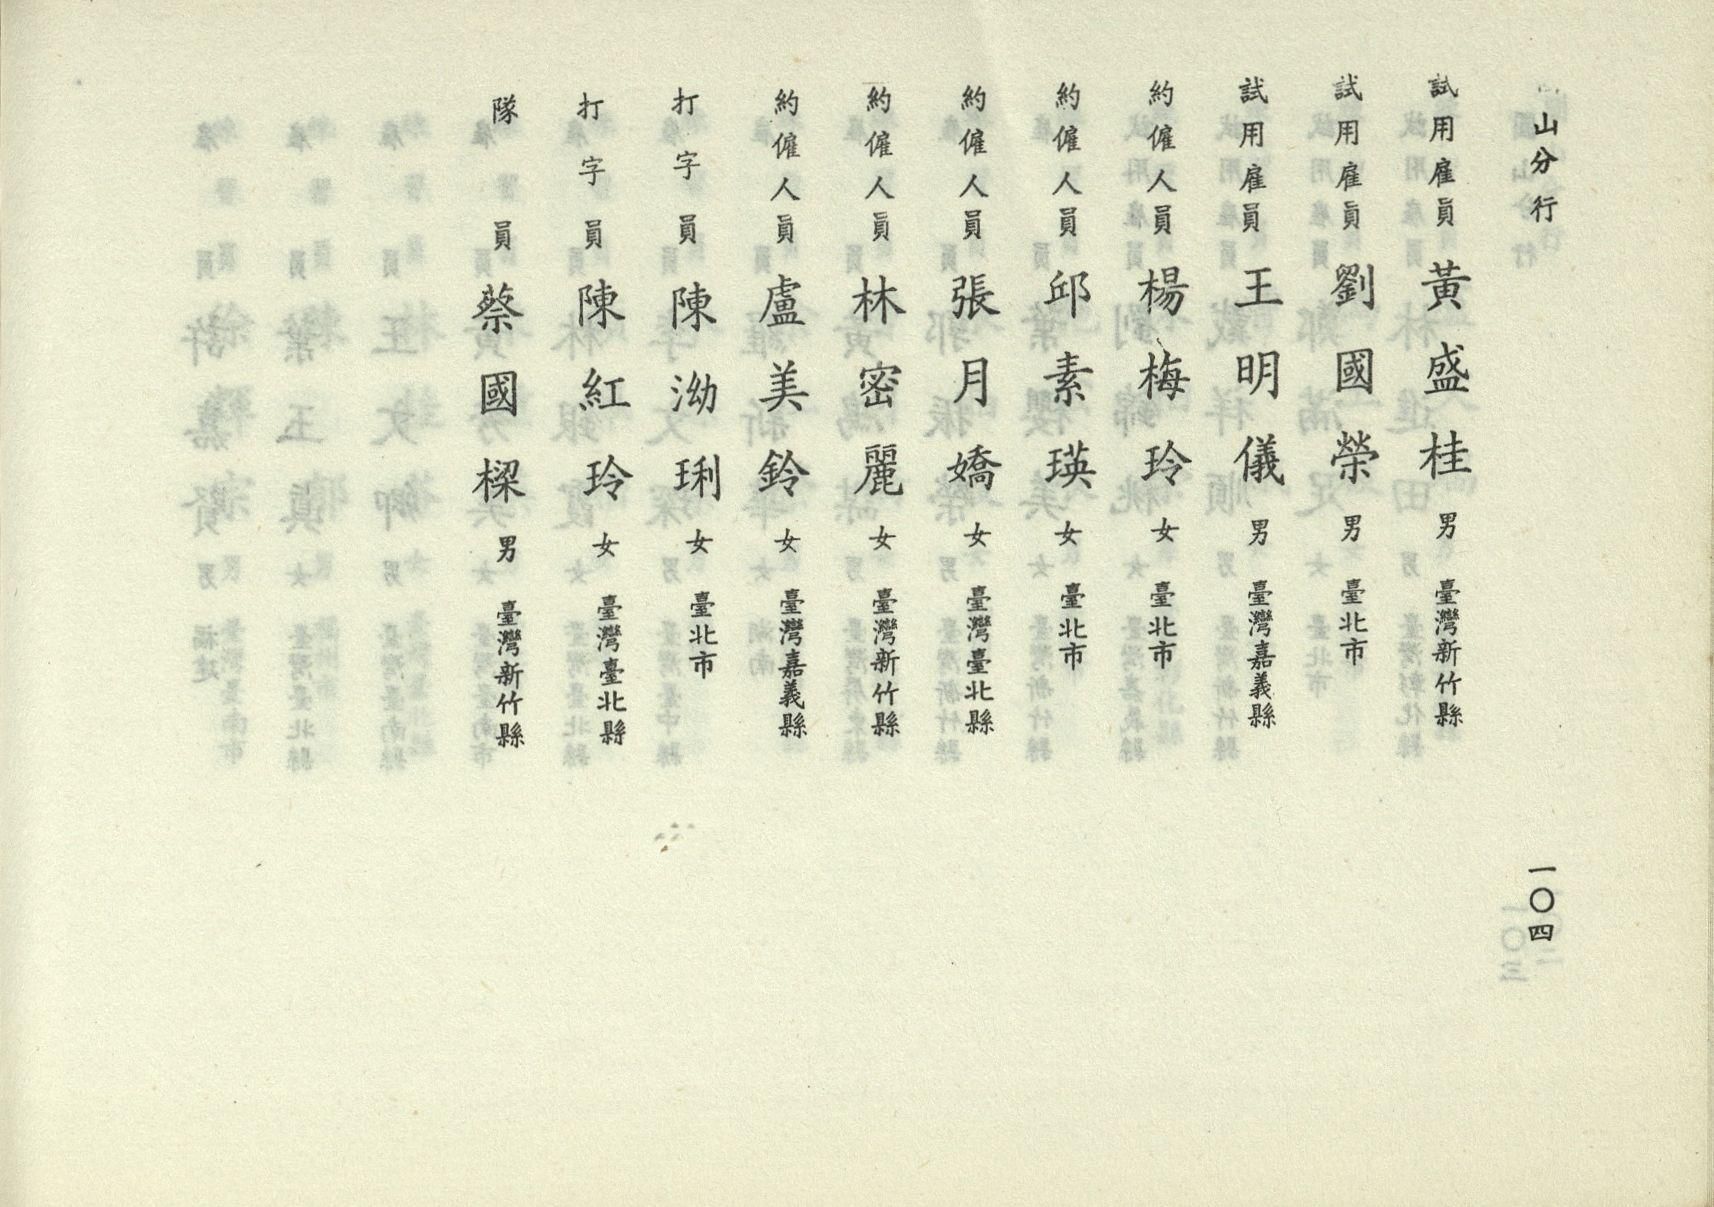 山分行
試用雇員 黃盛桂 男 臺灣新竹縣
試用雇員 劉國榮 男 臺北市
試用雇員 王明儀 男 臺灣嘉義縣
約僱人員 楊梅玲 女 臺北市
約僱人員 邱素瑛 女 臺北市
約僱人員 張月嬌 女 臺灣臺北縣
約僱人員 林密麗 女 臺灣新竹縣
約僱人員 盧美鈴 女 臺灣嘉義縣
打字員 陳泑琍 女 臺北市
打字員 陳紅玲 女 臺灣臺北縣
隊員 蔡國樑 男 臺灣新竹縣
一〇四